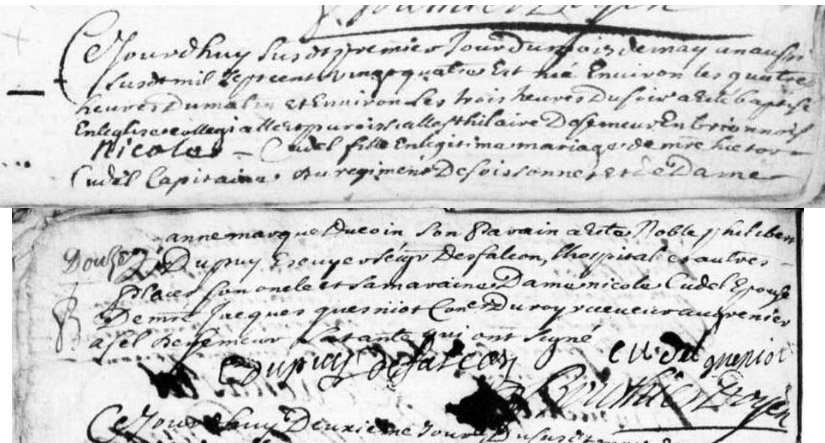 Cejourdhuy susdt premier jour du mois de may an aussi
susdt mil sept cent vingt quatre Est né Environ les quatre
heures du matin et Environ les trois heures du soir a Esté baptisé
En leglise collegialle et paroissialle st hilaire de semeur En brionnois
Nicolas Cudel fils En legitime mariage de mre hector
Cudel Capitaine au regiment de soissonnes et de Dame
anne marque Ducoin Son Parain a Esté Noble philibert
Douze
Dupuy Escuyer seigr Desfalcon, lhospital et autres
places son oncle et sa maraine Dame nicole Cudel Epouse
De mre Jacques quesniot Conr Du roy receveur au grenier
a sel de semeur sa tante qui ont signé
Dupuy desfalcon Cudel queniot
Doyen
Cejourdhuy Deuxieme Jour Du susdt